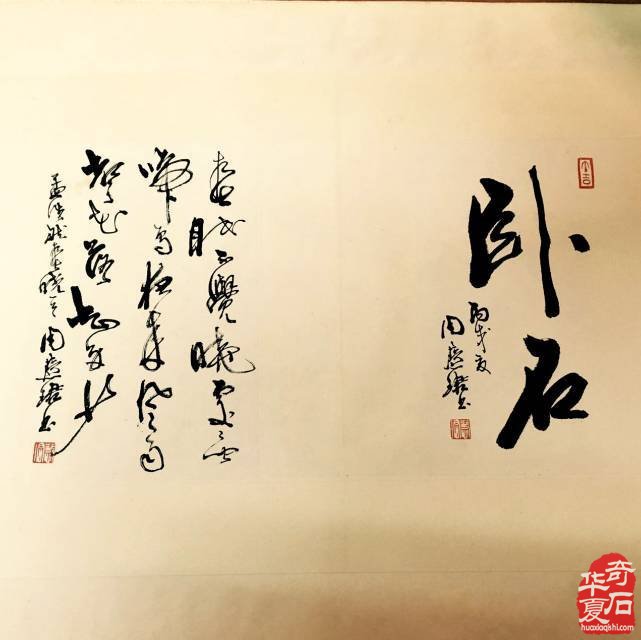 卧石
丙戌夏
周慧珺书
春眠不覺曉處處聞
啼鳥夜來風雨
聲花落知多少
孟浩然春曉 周慧珺书
华夏
奇石
huaxiaqishi.com